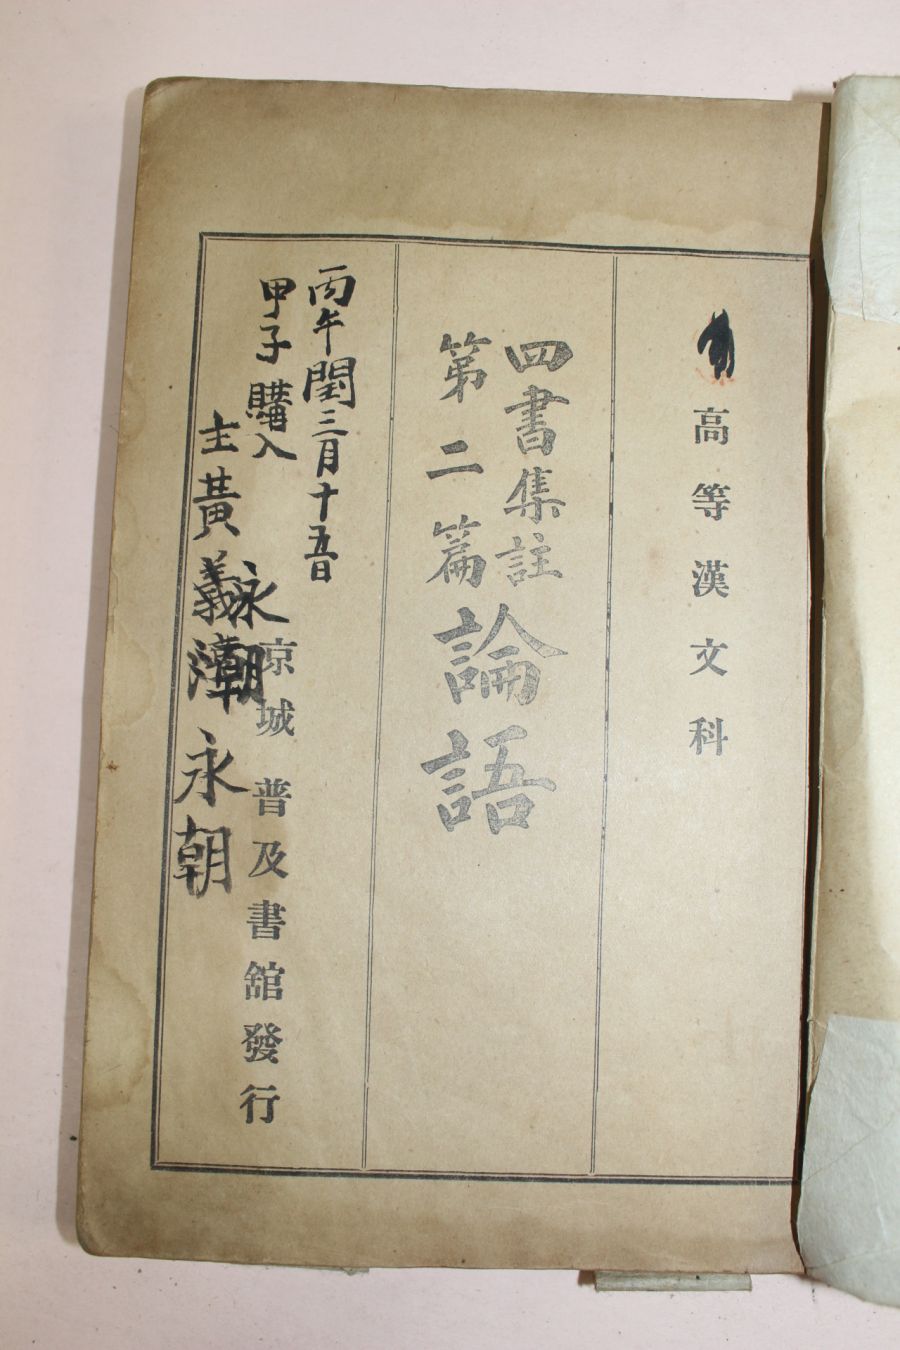 高等漢文科
四書集註
第二篇
論語
京城 普及書館發行
丙午閏三月十五日
甲子購入
主黃義潮
永潮
永朝